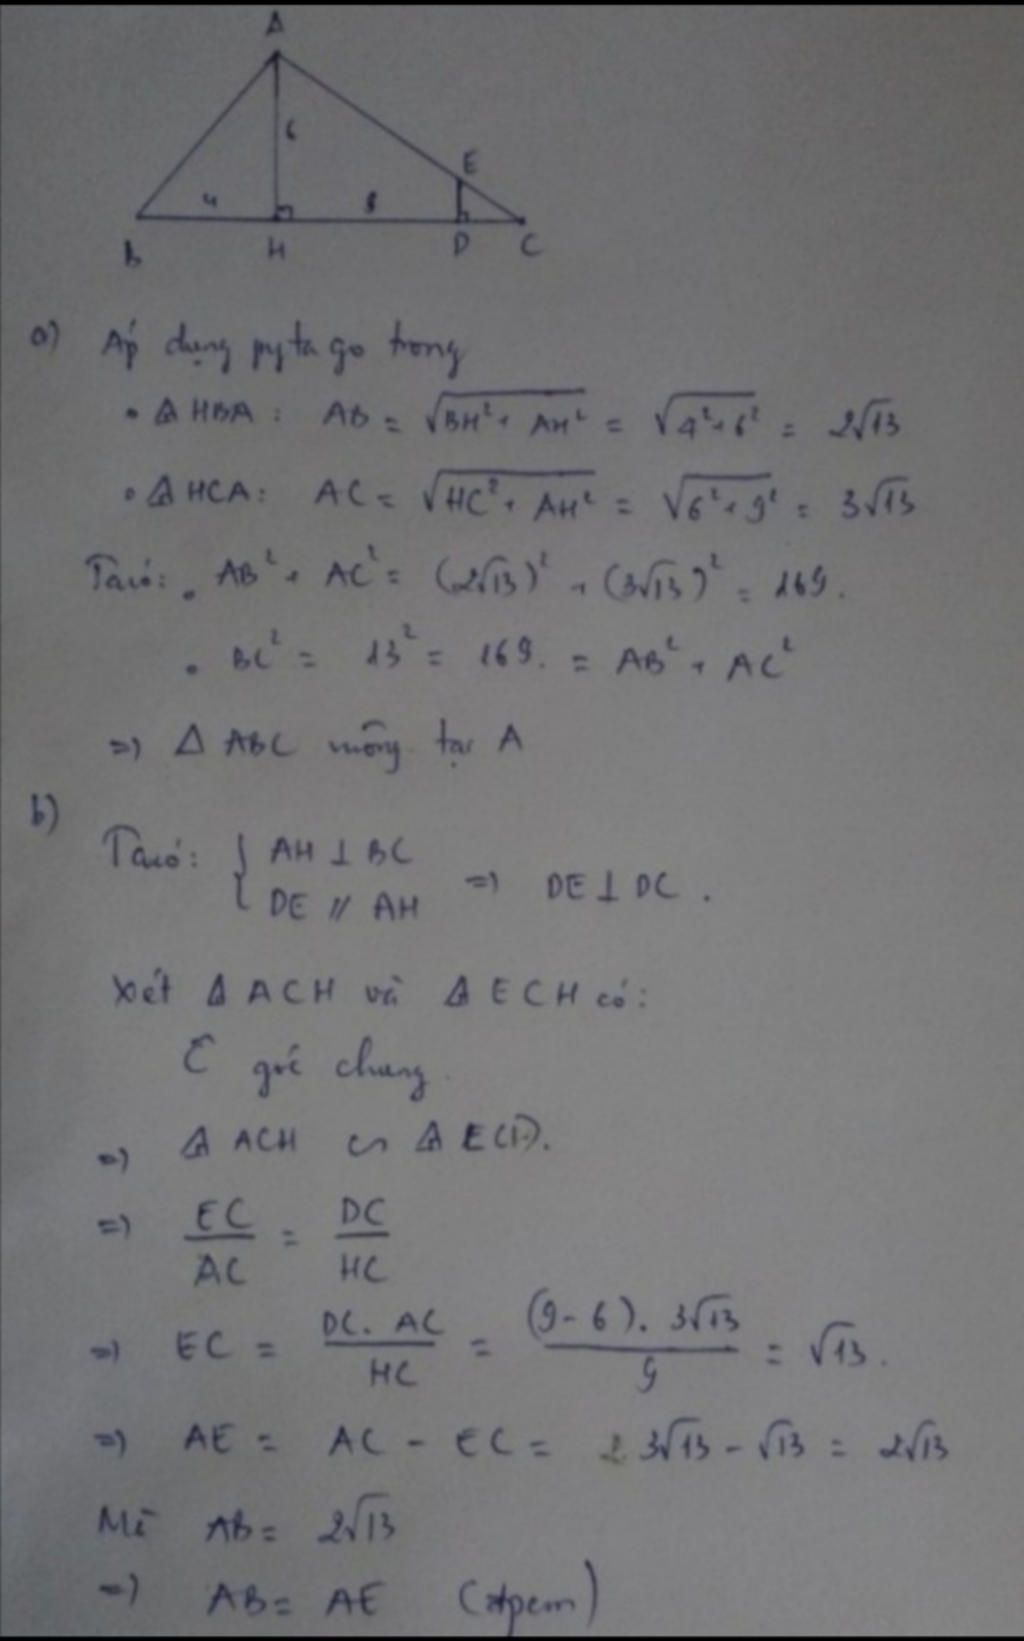 A
6
E
4
B
H
D
C
a) Áp dụng pytago trong
• Δ HBA : AB = √(BH² + AH²) = √(4² + 6²) = 2√13
• Δ HCA : AC = √(HC² + AH²) = √(6² + 9²) = 3√13
Ta có : • AB² + AC² = (2√13)² + (3√13)² = 169.
• BC² = 13² = 169. = AB² + AC²
=) Δ ABC vuông tại A
b)
Ta có : { AH ⊥ BC
DE // AH =) DE ⊥ DC .
Xét Δ ACH và Δ ECH có :
Ĉ góc chung.
=) Δ ACH ∽ Δ ECD.
=) EC/AC = DC/HC
=) EC = DC. AC/HC = (9-6). 3√13/9 = √13.
=) AE = AC - EC = 3√13 - √13 = 2√13
Mà AB = 2√13
=) AB = AE (đpcm)